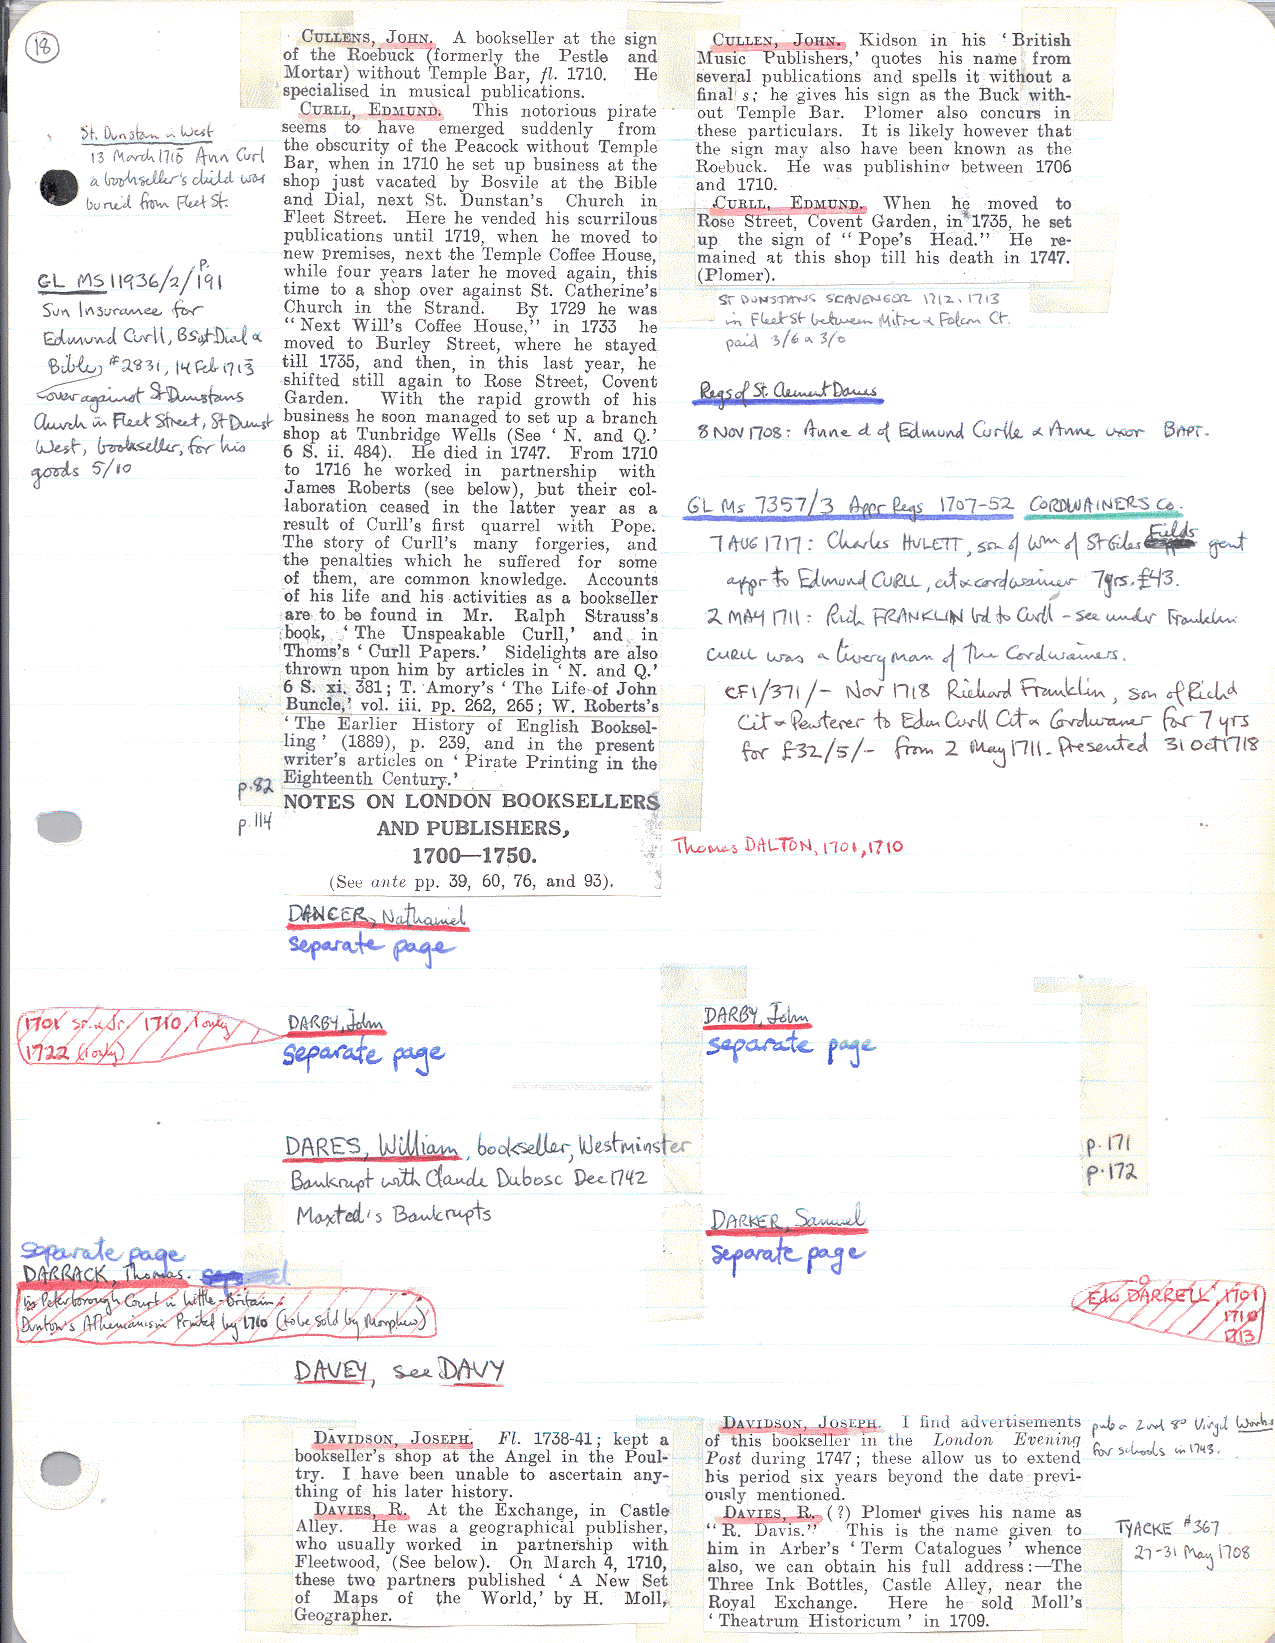 18
CULLENS, JOHN. A bookseller at the sign
of the Roebuck (formerly the Pestle and
Mortar) without Temple Bar, fl. 1710. He
specialised in musical publications.
CURLL, EDMUND. This notorious pirate
seems to have emerged suddenly from
the obscurity of the Peacock without Temple
Bar, when in 1710 he set up business at the
shop just vacated by Bosvile at the Bible
and Dial, next St. Dunstan's Church in
Fleet Street. Here he vended his scurrilous
publications until 1719, when he moved to
new premises, next the Temple Coffee House,
while four years later he moved again, this
time to a shop over against St. Catherine's
Church in the Strand. By 1729 he was
"Next Will's Coffee House," in 1733 he
moved to Burley Street, where he stayed
till 1735, and then, in this last year, he
shifted still again to Rose Street, Covent
Garden. With the rapid growth of his
business he soon managed to set up a branch
shop at Tunbridge Wells (See 'N. and Q.'
6 S. ii. 484). He died in 1747. From 1710
to 1716 he worked in partnership with
James Roberts (see below), but their col-
laboration ceased in the latter year as a
result of Curll's first quarrel with Pope.
The story of Curll's many forgeries, and
the penalties which he suffered for some
of them, are common knowledge. Accounts
of his life and his activities as a bookseller
are to be found in Mr. Ralph Strauss's
book, 'The Unspeakable Curll,' and in
Thoms's 'Curll Papers.' Sidelights are also
thrown upon him by articles in 'N. and Q.'
6 S. xi. 381; T. Amory's 'The Life of John
Buncle,' vol. iii, pp. 262, 265; W. Roberts's
'The Earlier History of English Booksel-
ling' (1889), p. 239, and in the present
writer's articles on 'Pirate Printing in the
Eighteenth Century.'
p.82
NOTES ON LONDON BOOKSELLERS
AND PUBLISHERS,
1700—1750.
(See ante pp. 39, 60, 76, and 93).
p.114
St. Dunstan in West
13 March 1715 Ann Curl
a bookseller's child was
buried from Fleet St.
GL MS 11936/2/p.191
Sun Insurance for
Edmund Curll, BS at Dial &
Bible, #2831, 14 Feb 1713
over against St Dunstans
Church in Fleet Street, St Dunst
West, bookseller, for his
goods 5/10
CULLEN, JOHN. Kidson in his 'British
Music Publishers,' quotes his name from
several publications and spells it without a
final s; he gives his sign as the Buck with-
out Temple Bar. Plomer also concurs in
these particulars. It is likely however that
the sign may also have been known as the
Roebuck. He was publishing between 1706
and 1710.
CURLL, EDMUND. When he moved to
Rose Street, Covent Garden, in 1735, he set
up the sign of "Pope's Head." He re-
mained at this shop till his death in 1747.
(Plomer).
ST DUNSTANS SCAVENGER 1712, 1713
in Fleet St between Mitre & Falcon Ct.
paid 3/6 & 3/0
Regs of St. Clement Danes
8 NOV 1708: Anne d of Edmund Curlle & Anne uxor BAPT.
GL Ms 7357/3 Appr Regs 1707-52 CORDWAINERS Co.
7 AUG 1717: Charles HULETT, son of Wm of St Giles Fields gent
appr to Edmund CURLL, cit & cordwainer 7yrs. £43.
2 MAY 1711: Rich FRANKLIN bd to Curll - see under Franklin
CURLL was a liveryman of the Cordwainers.
CF1/371/- Nov 1718 Richard Franklin, son of Richd
Cit & Pewterer to Edm Curll Cit & Cordwaner for 7 yrs
for £32/5/- from 2 May 1711. Presented 31 Oct 1718
Thomas DALTON, 1701, 1710
DANCER, Nathaniel
separate page
1701 Sr. & Jr. 1710, 1 only
1722 (1 only)
DARBY, John
separate page
DARBY, John
separate page
DARES, William, bookseller, Westminster
Bankrupt with Claude Dubosc Dec 1742
Maxted's Bankrupts
p.171
p.172
DARKER, Samuel
separate page
separate page
DARRACK, Thomas.
in Peterborough Court in Little-Britain.
Dunton's Athenianism Printed by 1710 (to be sold by Morphew)
Edw DARRELL, 1701
1710
1713
DAVEY, see DAVY
DAVIDSON, JOSEPH. Fl. 1738-41; kept a
bookseller's shop at the Angel in the Poul-
try. I have been unable to ascertain any-
thing of his later history.
DAVIES, R. At the Exchange, in Castle
Alley. He was a geographical publisher,
who usually worked in partnership with
Fleetwood, (See below). On March 4, 1710,
these two partners published 'A New Set
of Maps of the World,' by H. Moll,
Geographer.
DAVIDSON, JOSEPH. I find advertisements
of this bookseller in the London Evening
Post during 1747; these allow us to extend
his period six years beyond the date previ-
ously mentioned.
DAVIES, R. (?) Plomer gives his name as
"R. Davis." This is the name given to
him in Arber's 'Term Catalogues' whence
also, we can obtain his full address:—The
Three Ink Bottles, Castle Alley, near the
Royal Exchange. Here he sold Moll's
'Theatrum Historicum' in 1709.
pub a 2nd 8° Virgil Works
for schools in 1743.
TYACKE #367
27-31 May 1708